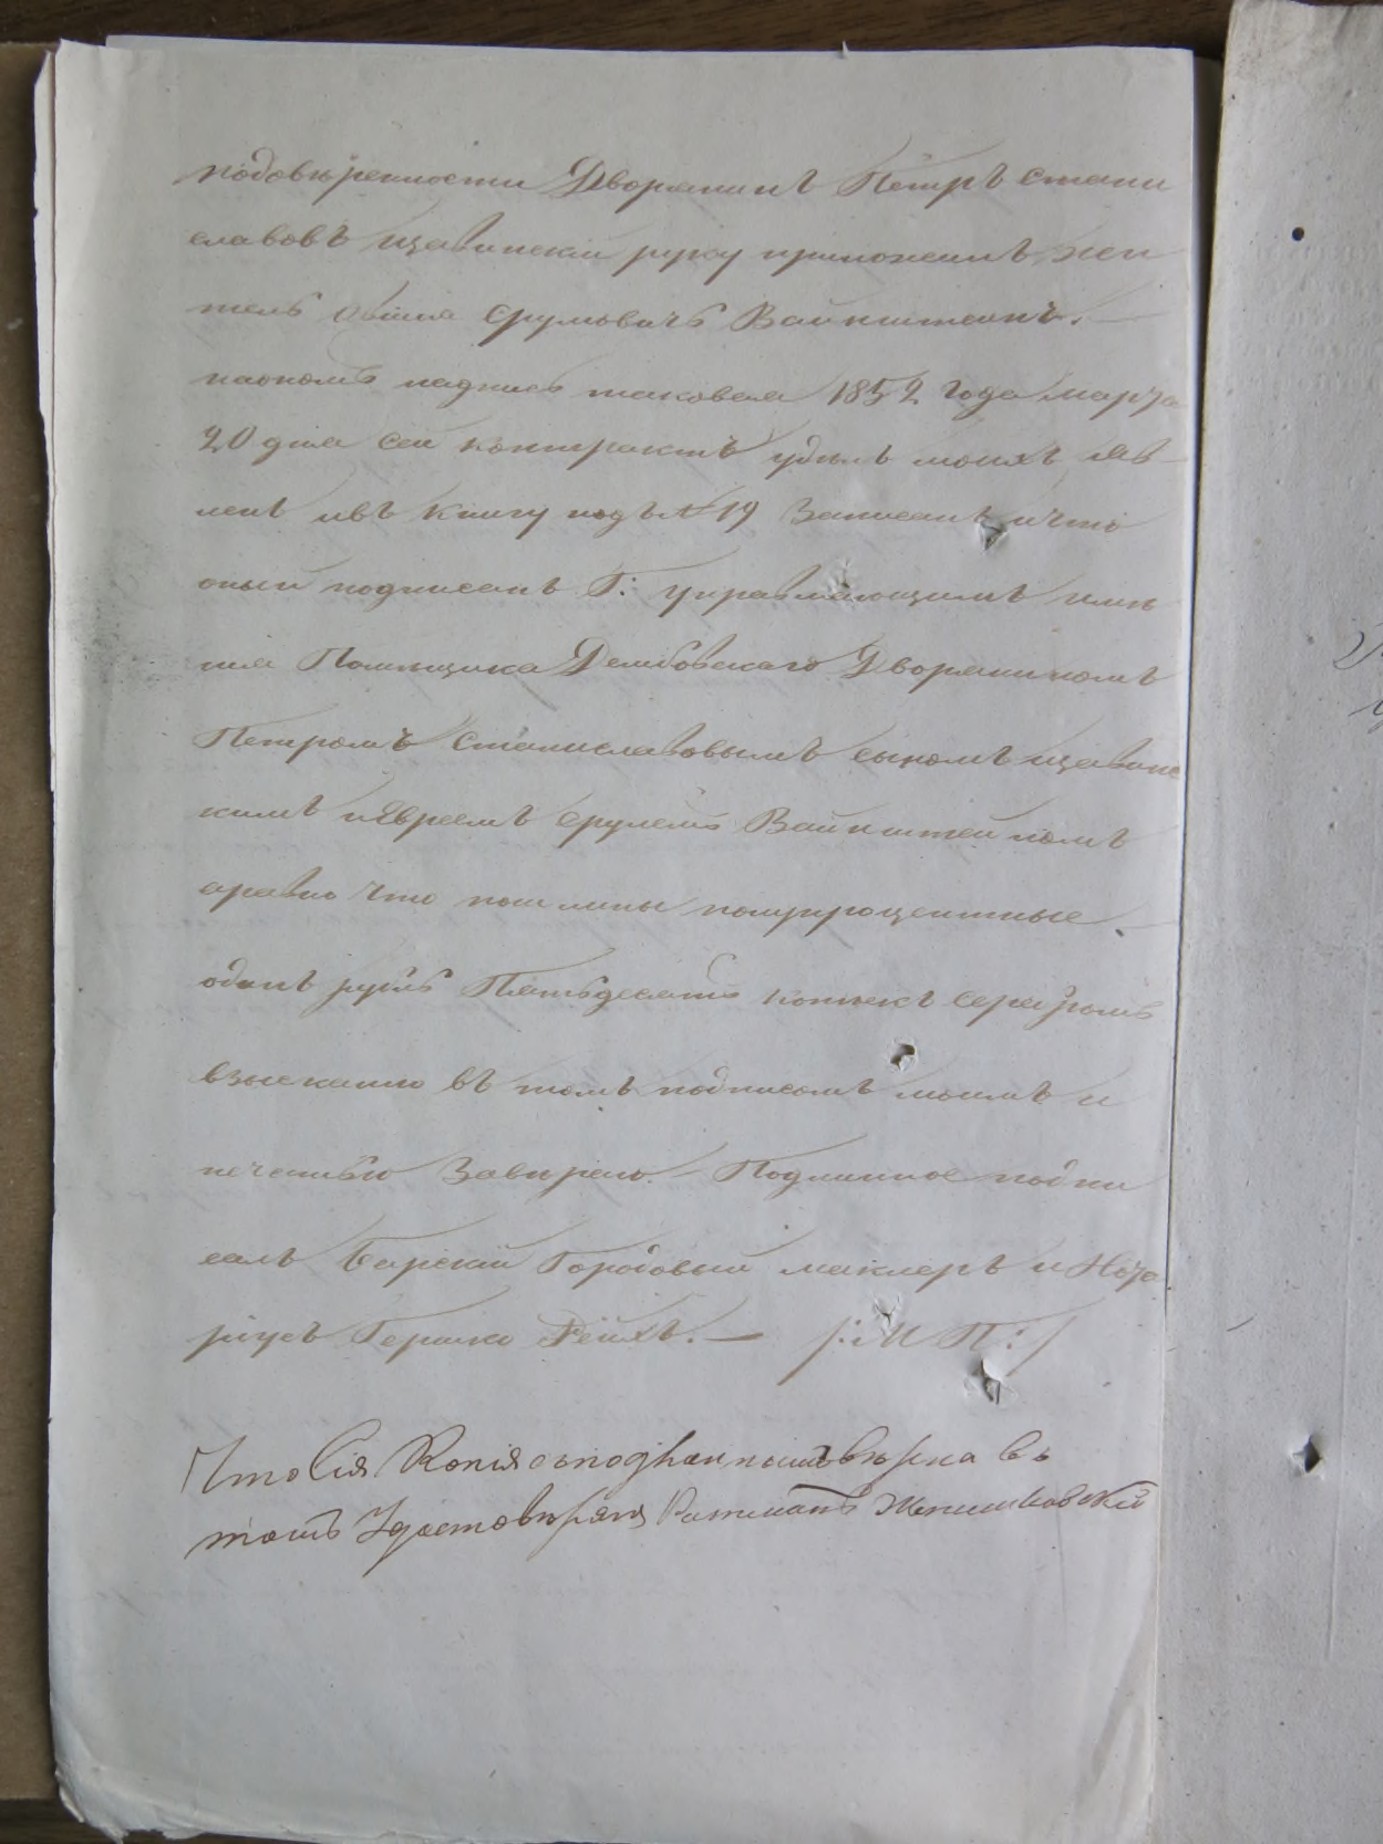 подовѣренности Дворянинъ Петръ Стани
славовъ Щавинскій руку приложилъ, жи
тель Сруловичъ Вайнштеинъ. —
наономъ надпись таковая 1852 года марта
20 дня сей контрактъ удѣлъ моихъ яв
ленъ ивъ книгу подъ № 19 Записанъ ичто
оный подписанъ Г: управляющимъ имѣ
нія Помѣщика Дембовскаго Дворяниномъ
Петромъ Станиславовымъ сыномъ Щавинс
кимъ иЕвреемъ Срулемъ Вайнштейномъ
аравно что пошлины полупроцентные
одинъ рубль Пятьдесятъ копѣекъ серебромъ
взысканы въ томъ подписомъ моимъ и
печатью Завѣряю. — Подлинное подпи
салъ Барскій Городовый маклеръ и Нота
ріусъ Гершко Рейхъ. — /: М П :/
Что Сія Копія сподлиннымъ вѣрна въ
томъ Удостовѣряю Ратманъ